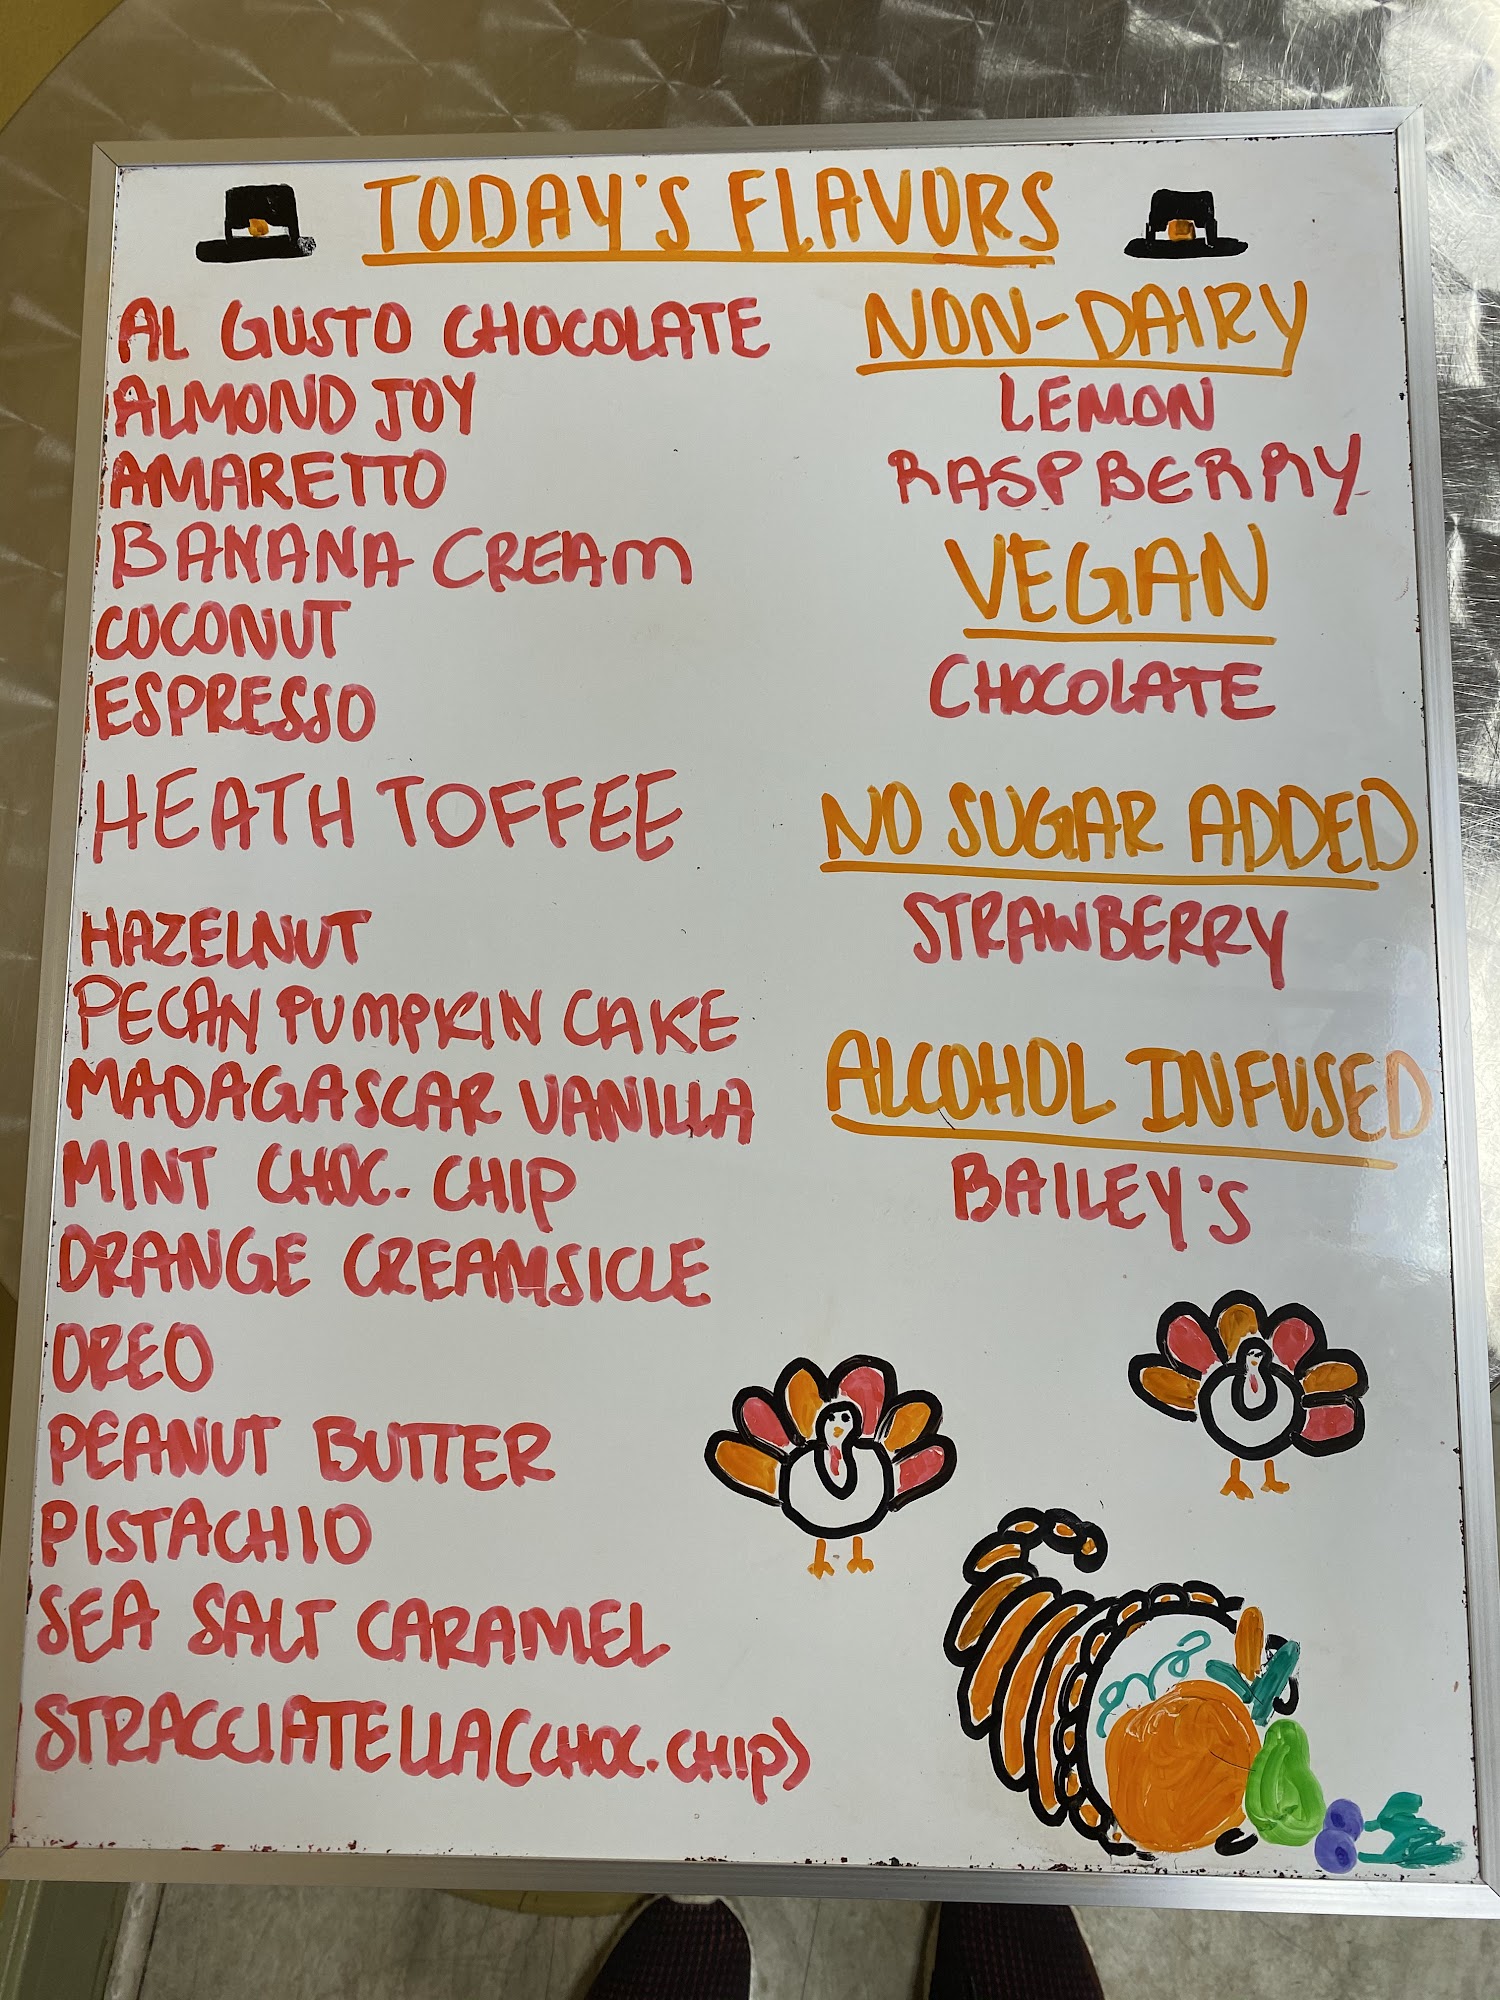 TODAY'S FLAVORS
AL GUSTO CHOCOLATE
ALMOND JOY
AMARETTO
BANANA CREAM
COCONUT
ESPRESSO
HEATH TOFFEE
HAZELNUT
PECAN PUMPKIN CAKE
MADAGASCAR VANILLA
MINT CHOC. CHIP
ORANGE CREAMSICLE
OREO
PEANUT BUTTER
PISTACHIO
SEA SALT CARAMEL
STRACCIATELLA (CHOC. CHIP)
NON-DAIRY
LEMON
RASPBERRY
VEGAN
CHOCOLATE
NO SUGAR ADDED
STRAWBERRY
ALCOHOL INFUSED
BAILEY'S